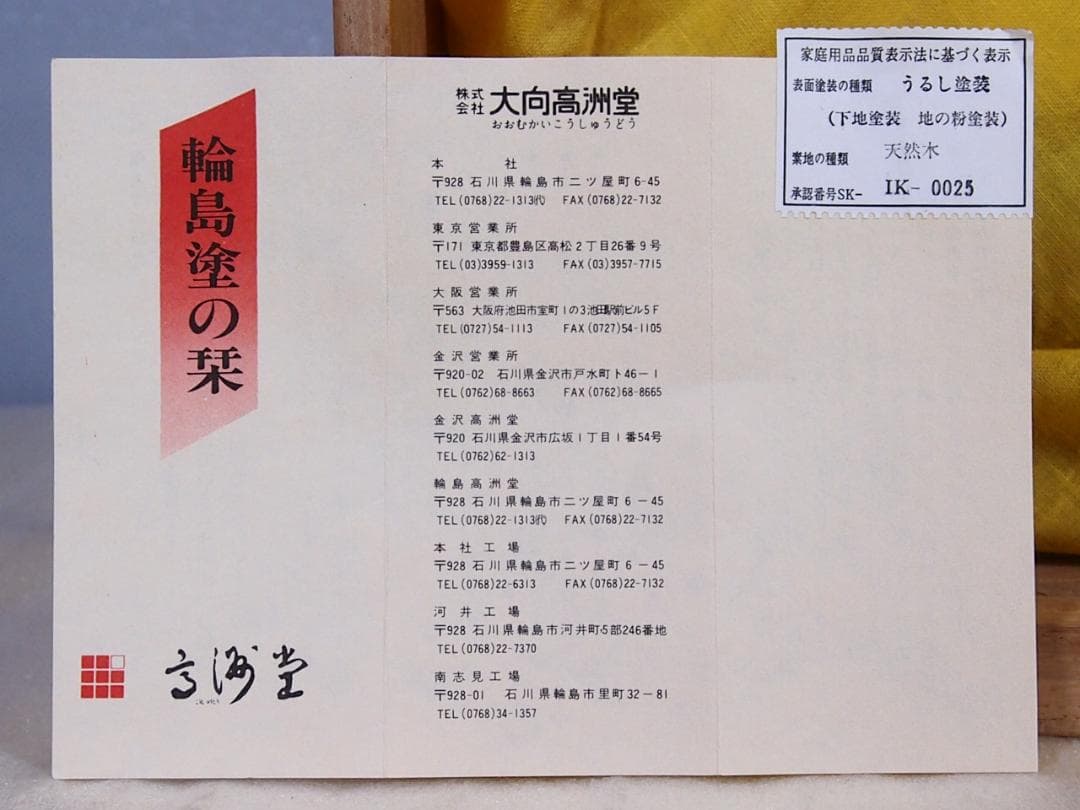 輪島塗の栞
高洲堂
株式
会社 大向高洲堂
おおむかいこうしゅうどう
本社
〒928 石川県輪島市二ツ屋町6-45
TEL(0768)22-1313㈹ FAX(0768)22-7132
東京営業所
〒171 東京都豊島区高松2丁目26番9号
TEL(03)3959-1313 FAX(03)3957-7715
大阪営業所
〒563 大阪府池田市室町1の3池田駅前ビル5F
TEL(0727)54-1113 FAX(0727)54-1105
金沢営業所
〒920-02 石川県金沢市戸水町ト46-1
TEL(0762)68-8663 FAX(0762)68-8665
金沢高洲堂
〒920 石川県金沢市広坂1丁目1番54号
TEL(0762)62-1313
輪島高洲堂
〒928 石川県輪島市二ツ屋町6-45
TEL(0768)22-1313㈹ FAX(0768)22-7132
本社工場
〒928 石川県輪島市二ツ屋町6-45
TEL(0768)22-6313 FAX(0768)22-7132
河井工場
〒928 石川県輪島市河井町5部246番地
TEL(0768)22-7370
南志見工場
〒928-01 石川県輪島市里町32-81
TEL(0768)34-1357
家庭用品品質表示法に基づく表示
表面塗装の種類 うるし塗装
(下地塗装 地の粉塗装)
素地の種類 天然木
承認番号SK- IK-0025